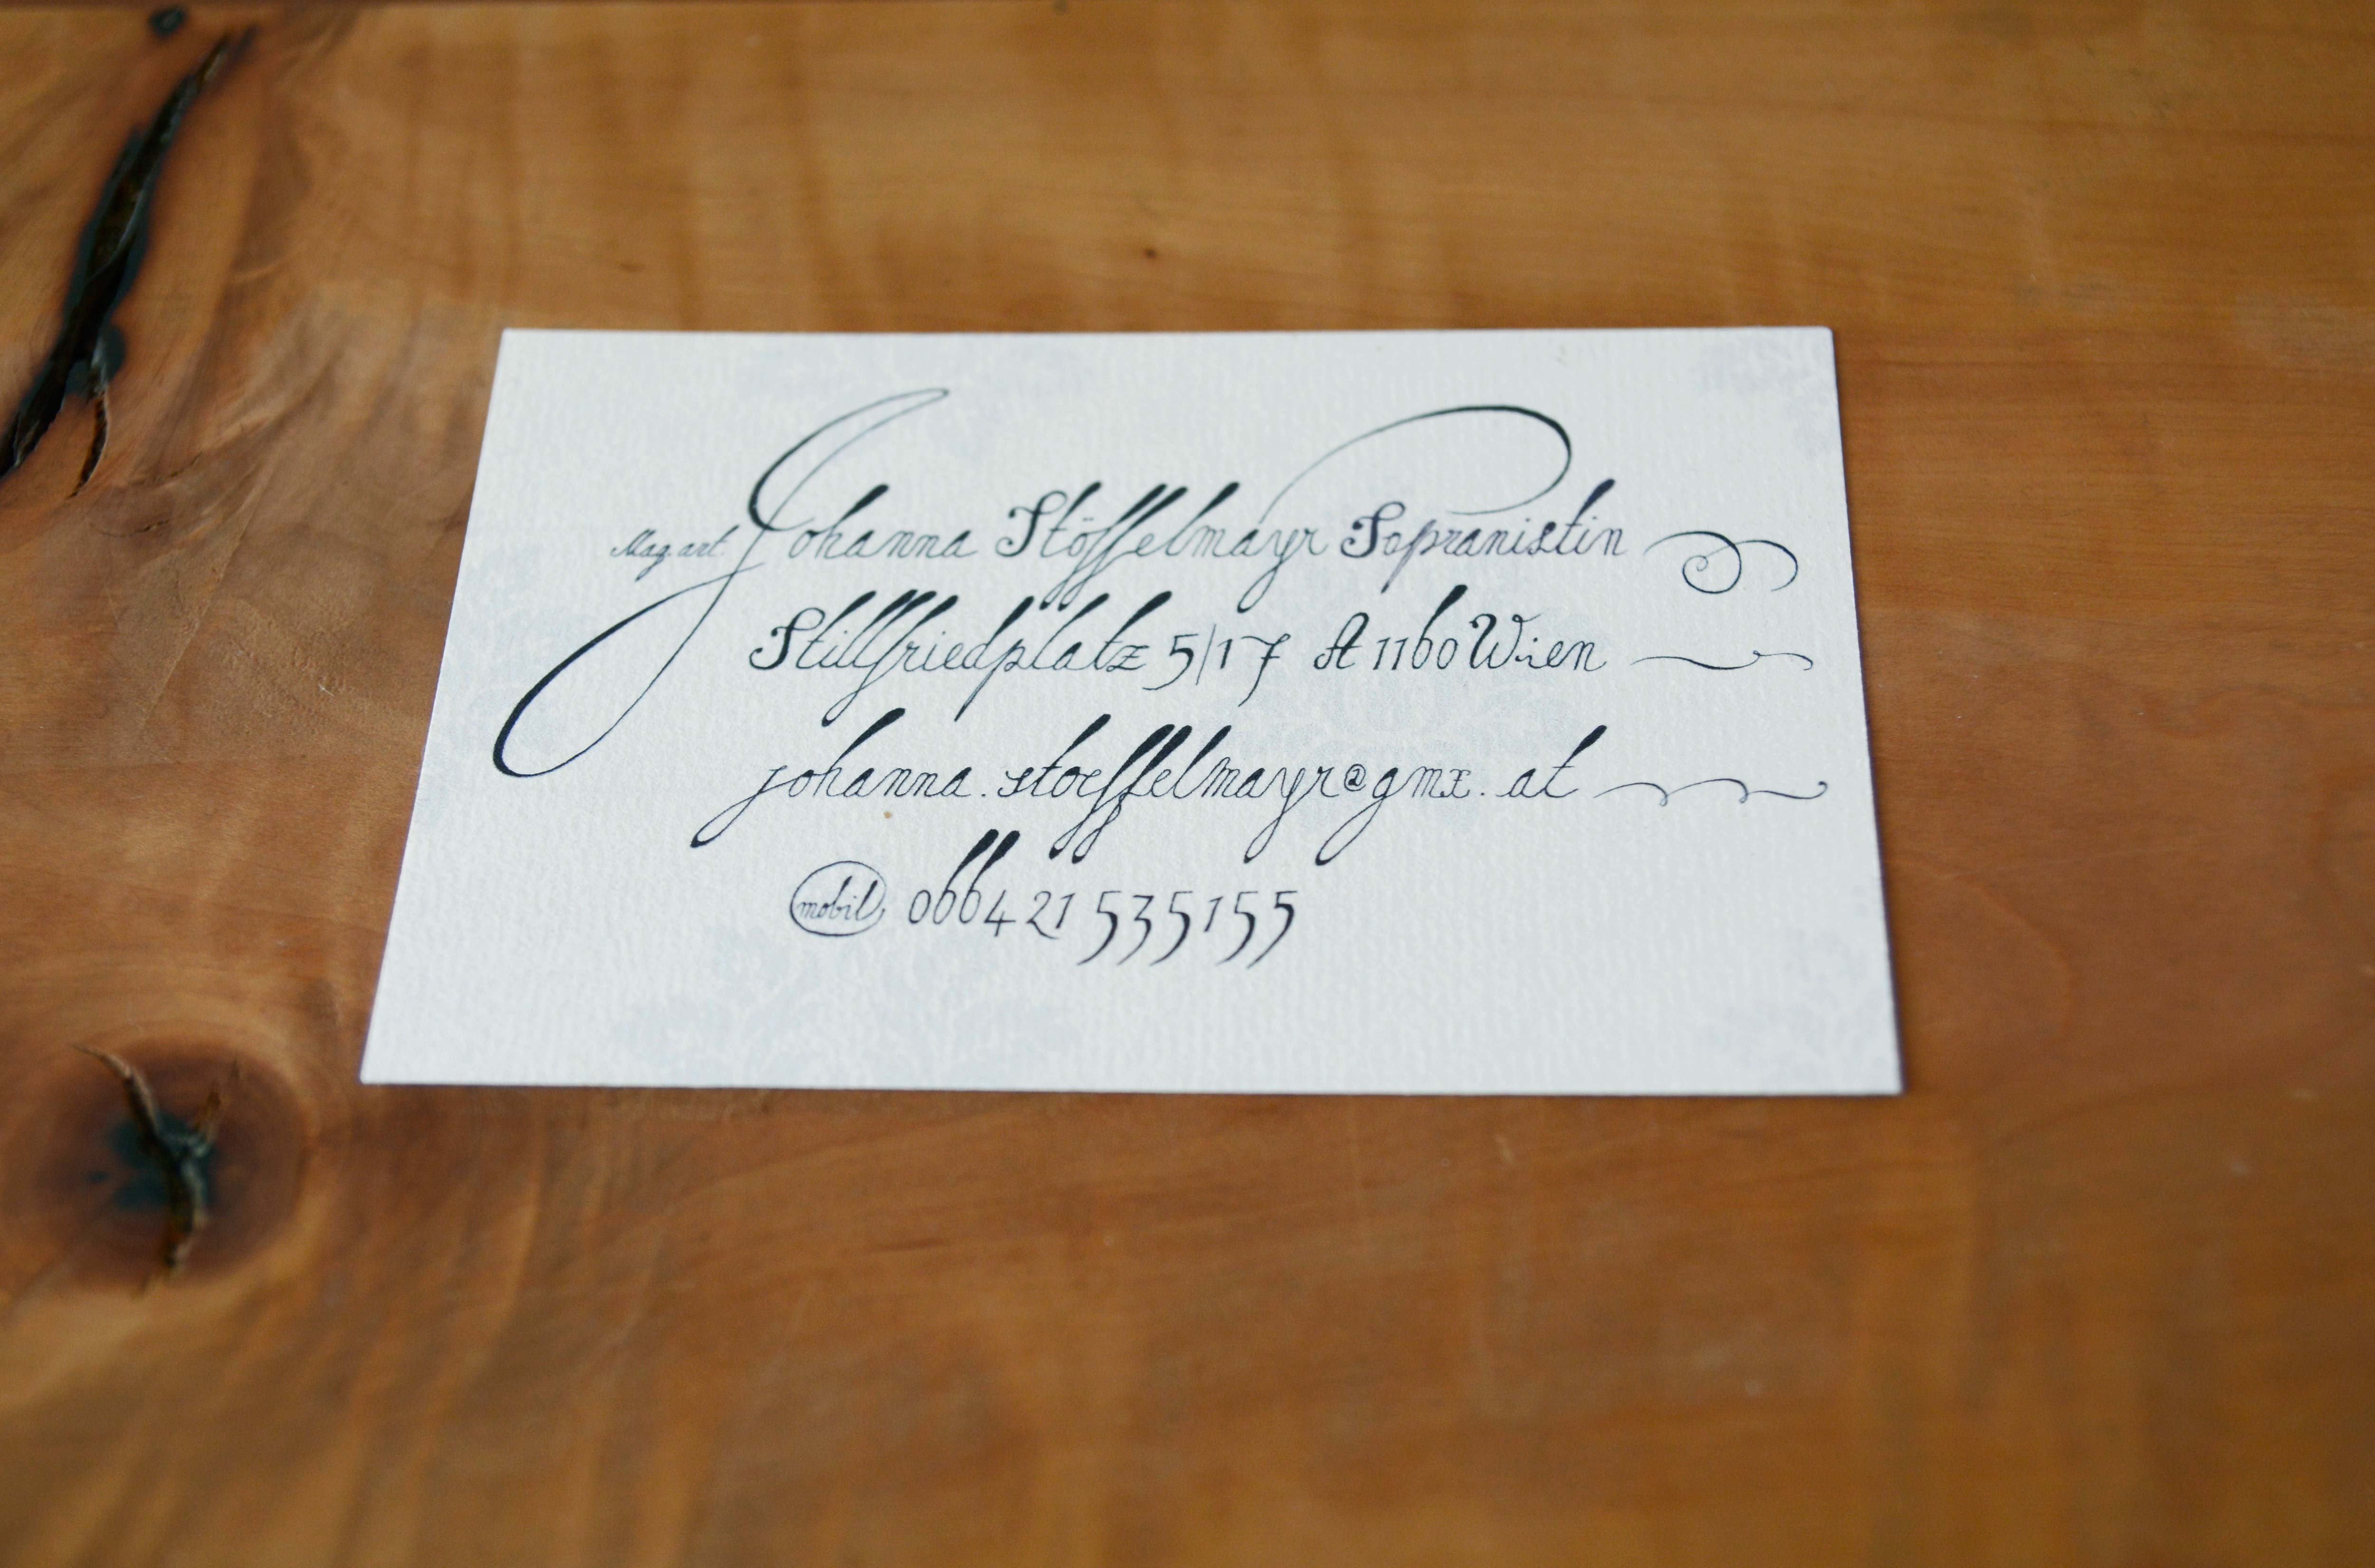 Mag. art. Johanna Stöffelmayr Sopranistin
Stillfriedplatz 5/17 A 1160 Wien
johanna.stoeffelmayr@gmx.at
mobil 0664 21 535155